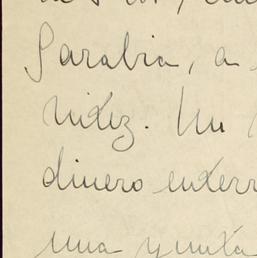 Sarabia, a
nidez. Un
dinero enterr
una yunta